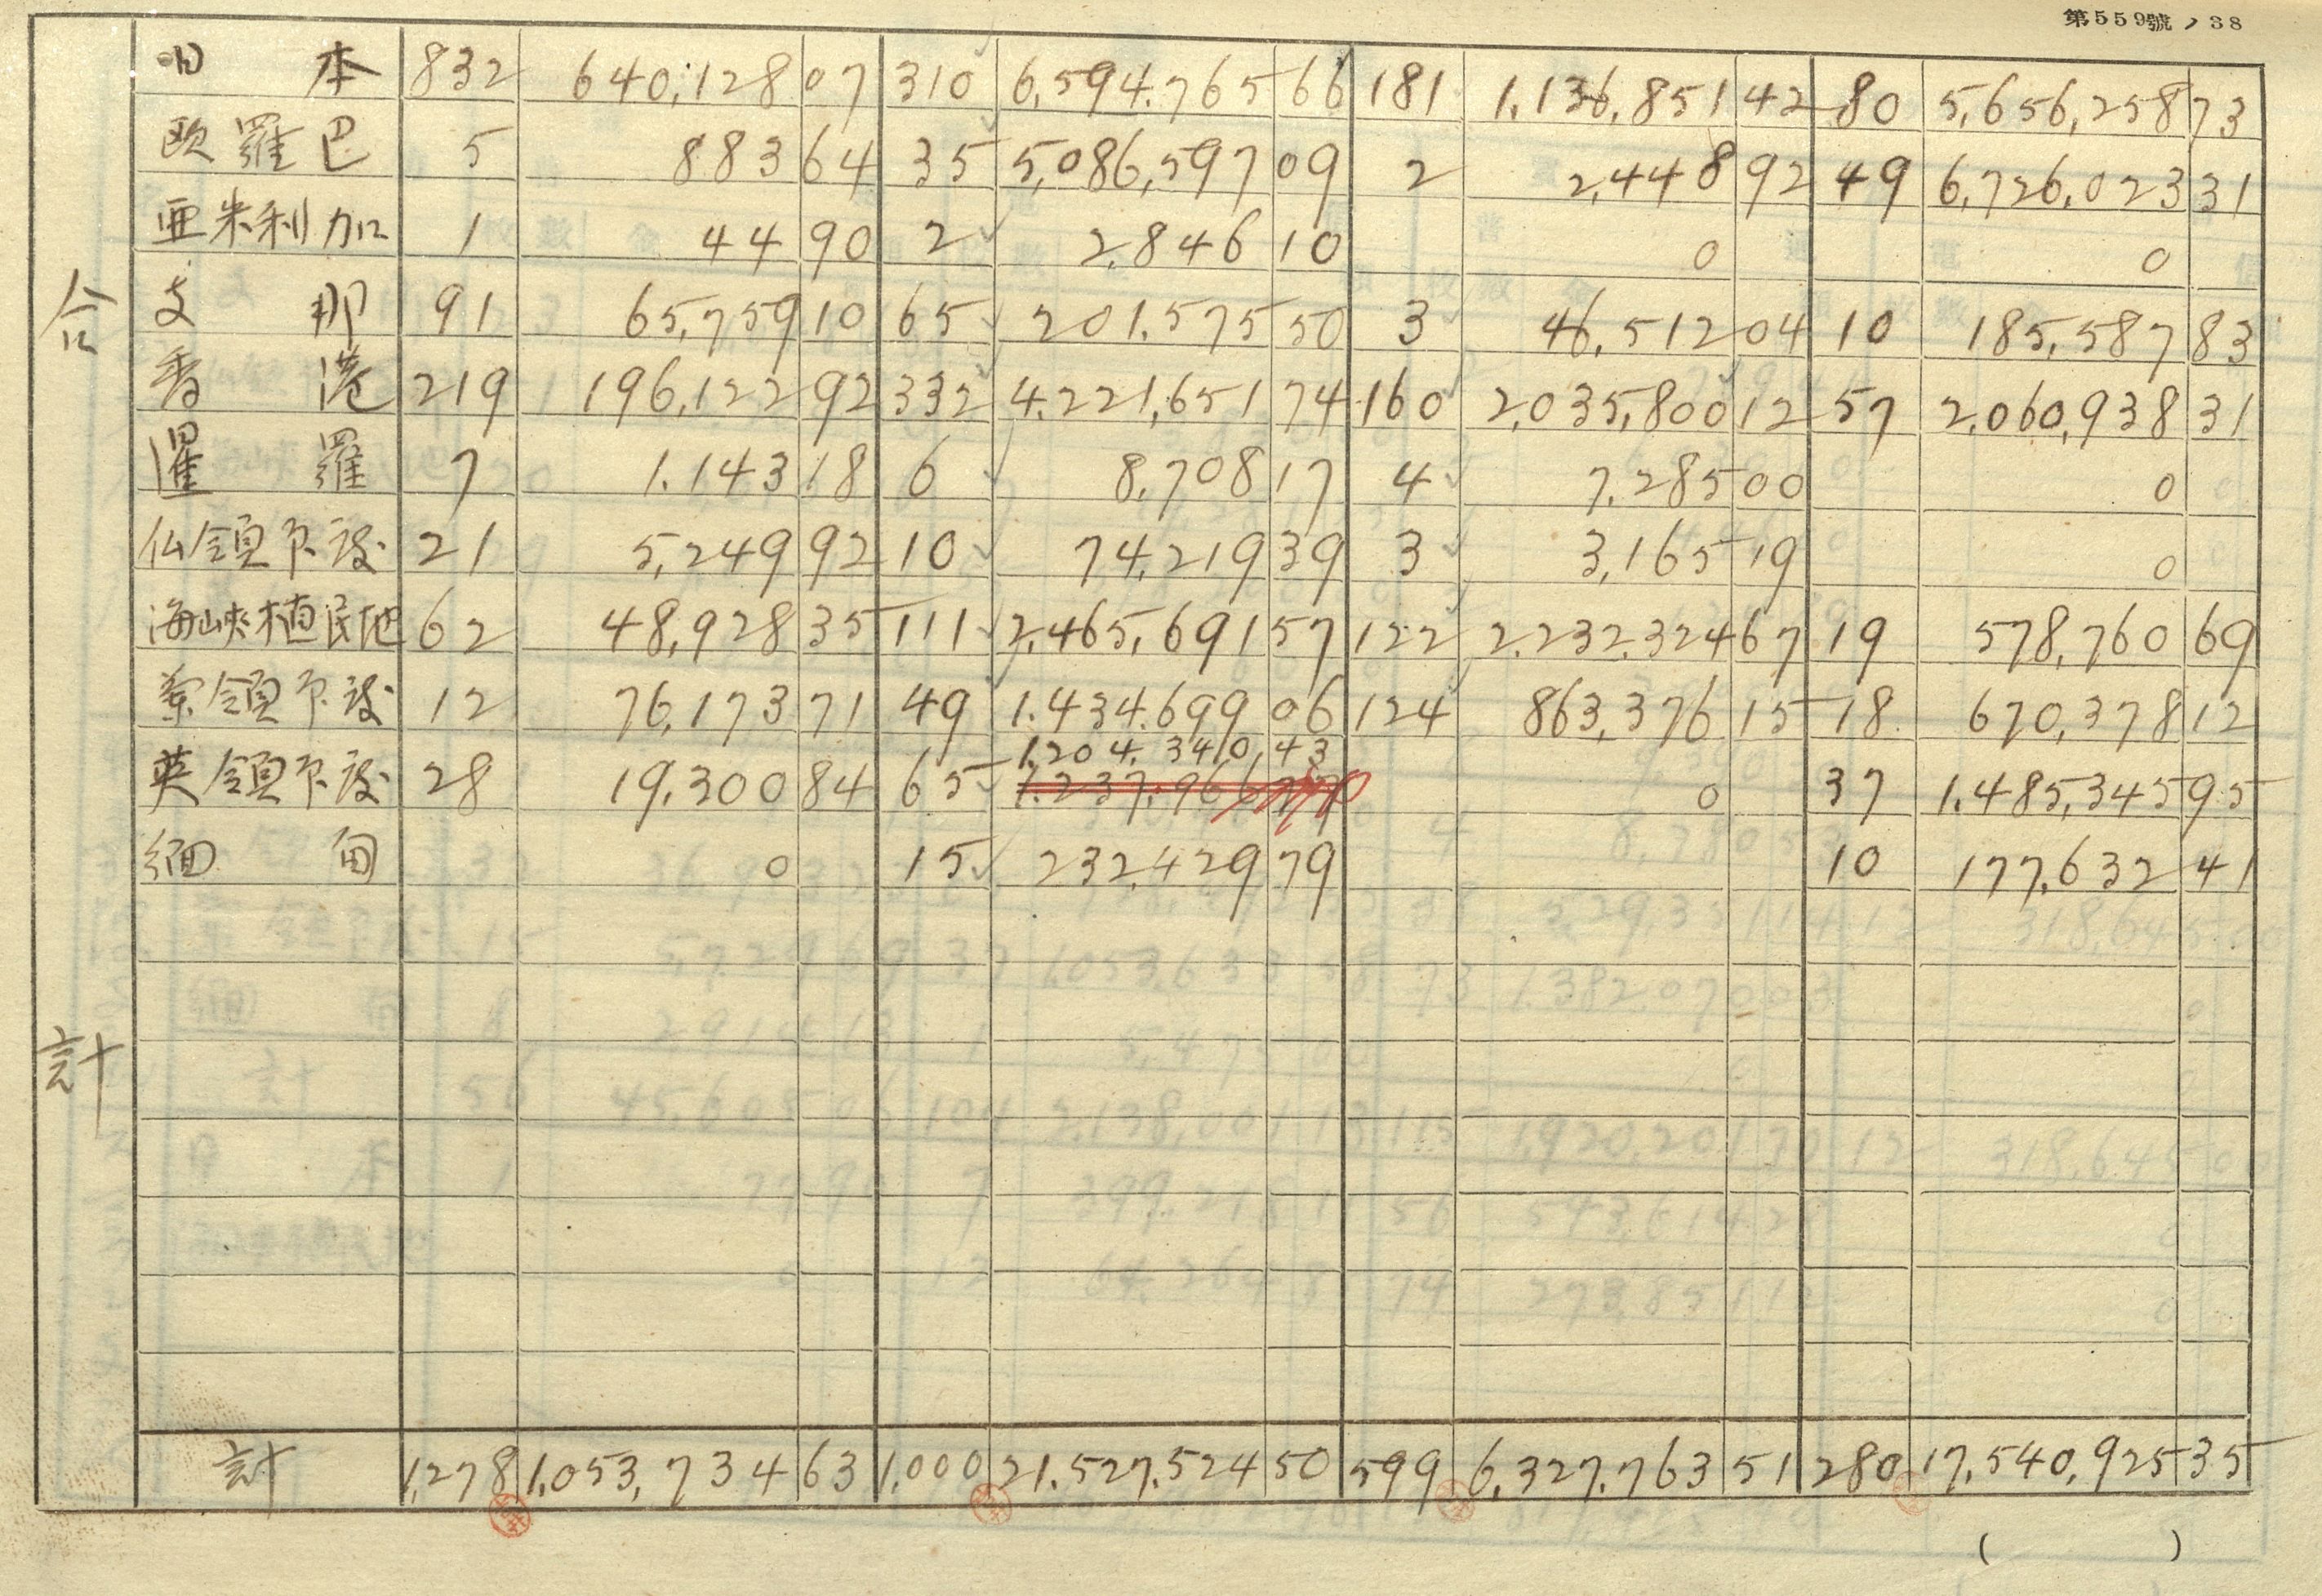 第559號ノ38
合計
日本 832 640,128 07 310 6,594,765 66 181 1,136,851 42 80 5,656,258 73
欧羅巴 5 883 64 35 5,086,597 09 2 2,448 92 49 6,726,023 31
亜米利加 1 44 90 2 2,846 10 0 0
支那 91 65,759 10 65 201,575 50 3 46,512 04 10 185,587 83
香港 219 196,122 92 332 4,221,651 74 160 2,035,800 12 57 2,060,938 31
暹羅 7 1,143 18 6 8,708 17 4 7,285 00 0
仏領印度 21 5,249 92 10 74,219 39 3 3,165 19 0
海峡植民地 62 48,928 35 111 2,465,691 57 122 2,232,324 67 19 578,760 69
蘭領印度 12 76,173 71 49 1,434,699 06 124 863,376 15 18 670,378 12
1,204,340,43
英領印度 28 19,300 84 65 1,237,966 0 37 1,485,345 95
緬甸 0 15 232,429 79 10 177,632 41
計 1,278 1,053,734 63 1,000 21,527,524 50 599 6,327,763 51 280 17,540,925 35
( )